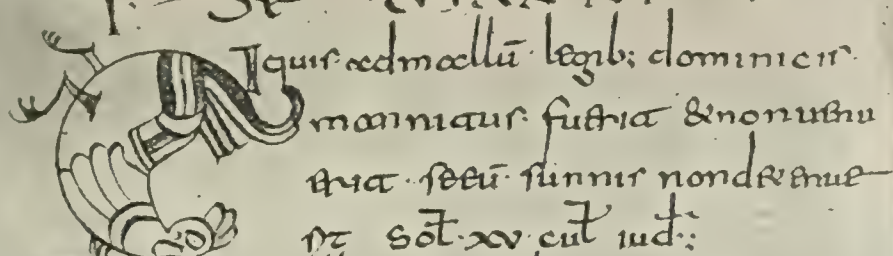 SIquis·admallū·legib; dominicis·
mannitus· fuerit &nonuenu
erit·seeū·sunnis nond&enue
rit̄ Sol̄·xv·cul̄ iud̄:;